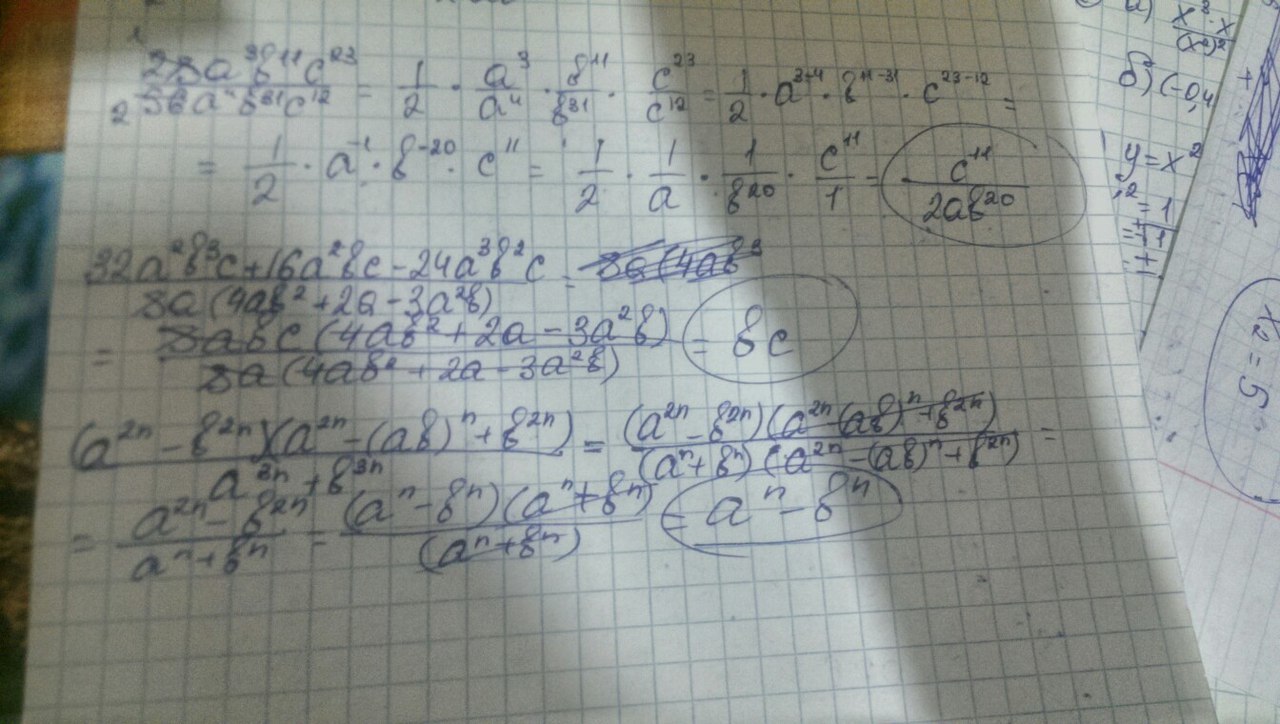 28a³b¹¹c²³ / 56a⁴b³¹c¹² = 1/2 · a³/a⁴ · b¹¹/b³¹ · c²³/c¹² = 1/2 · a³⁻⁴ · b¹¹⁻³¹ · c²³⁻¹² =
= 1/2 · a⁻¹ · b⁻²⁰ · c¹¹ = 1/2 · 1/a · 1/b²⁰ · c¹¹/1 = c¹¹ / 2ab²⁰
32a²b³c+16a²bc-24a³b²c / 8a(4ab²+2a-3a²b) =
= 8abc(4ab²+2a-3a²b) / 8a(4ab²+2a-3a²b) = bc
(a²ⁿ-b²ⁿ)(a²ⁿ-(ab)ⁿ+b²ⁿ) / a³ⁿ+b³ⁿ = (a²ⁿ-b²ⁿ)(a²ⁿ-(ab)ⁿ+b²ⁿ) / (aⁿ+bⁿ)(a²ⁿ-(ab)ⁿ+b²ⁿ) =
= a²ⁿ-b²ⁿ / aⁿ+bⁿ = (aⁿ-bⁿ)(aⁿ+bⁿ) / (aⁿ+bⁿ) = aⁿ-bⁿ
а) x³·x / (x²)²
б) (-0,4
y=x²
x₂=5